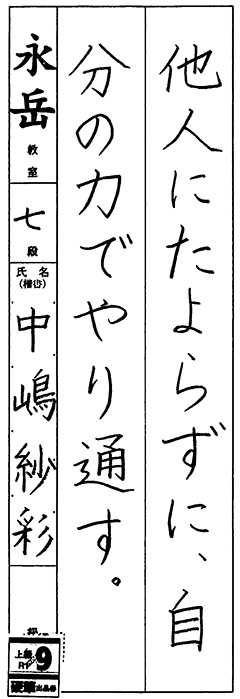 他人にたよらずに、自
分の力でやり通す。
永岳
教室
七段
氏名
(楷書)
中嶋紗彩
9
硬筆出品券